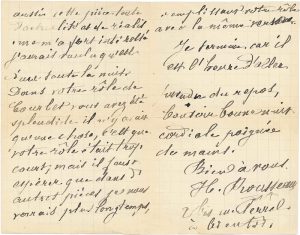 aussi cette pièce toute
m'a fort intéressé
J'aurais voulu qu'elle
dure toute la nuit.
Dans votre rôle de
vous avez été
splendide il n'y avait
qu'une chose, c'est que
votre rôle était trop
court; mais il faut
espérer que dans d'
autres pièces je vous
verrai plus longtemps,
remplissant votre rôle
avec la même
Je termine car il
est l'heure d'aller
prendre du repos,
bonne nuit
cordiale poignée
de mains.
Bien à vous.
H. Rousseau
Perrel